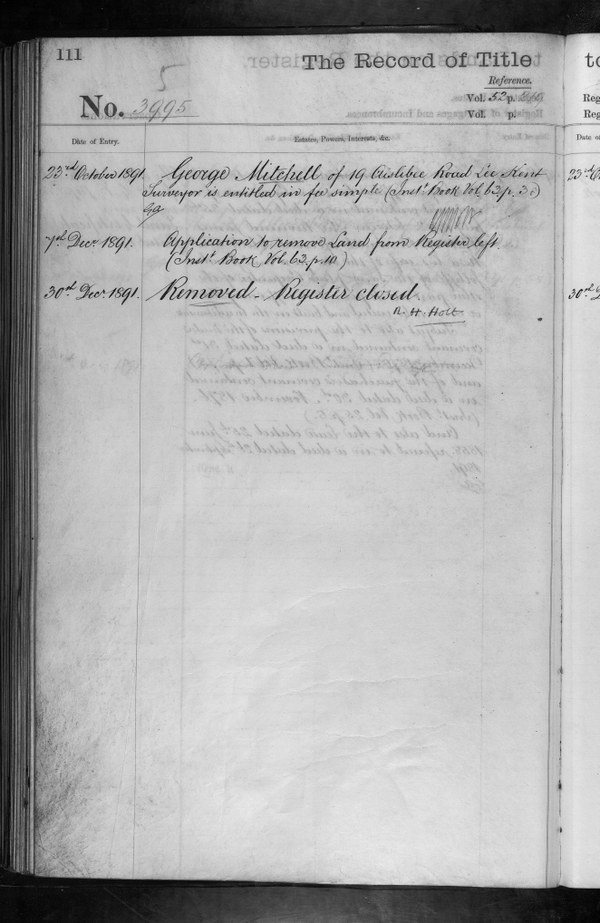 111
5
The Record of Title
to
Reference.
No. 3995
Vol. 52 p.
Vol. p.
Reg
Reg
Date of Entry.
Estates, Powers, Interests, &c.
Date of
23rd October 1891.
George Mitchell of 19 Road Lee Kent
Surveyor is entitled in fee simple (Inst. Book Vol. 63. p. 3.)
23rd O
7th Decr. 1891.
Application to remove Land from Register left
(Inst. Book Vol. 63. p. 10)
30th Decr. 1891.
Removed - Register closed
30th D
R. H. Holt